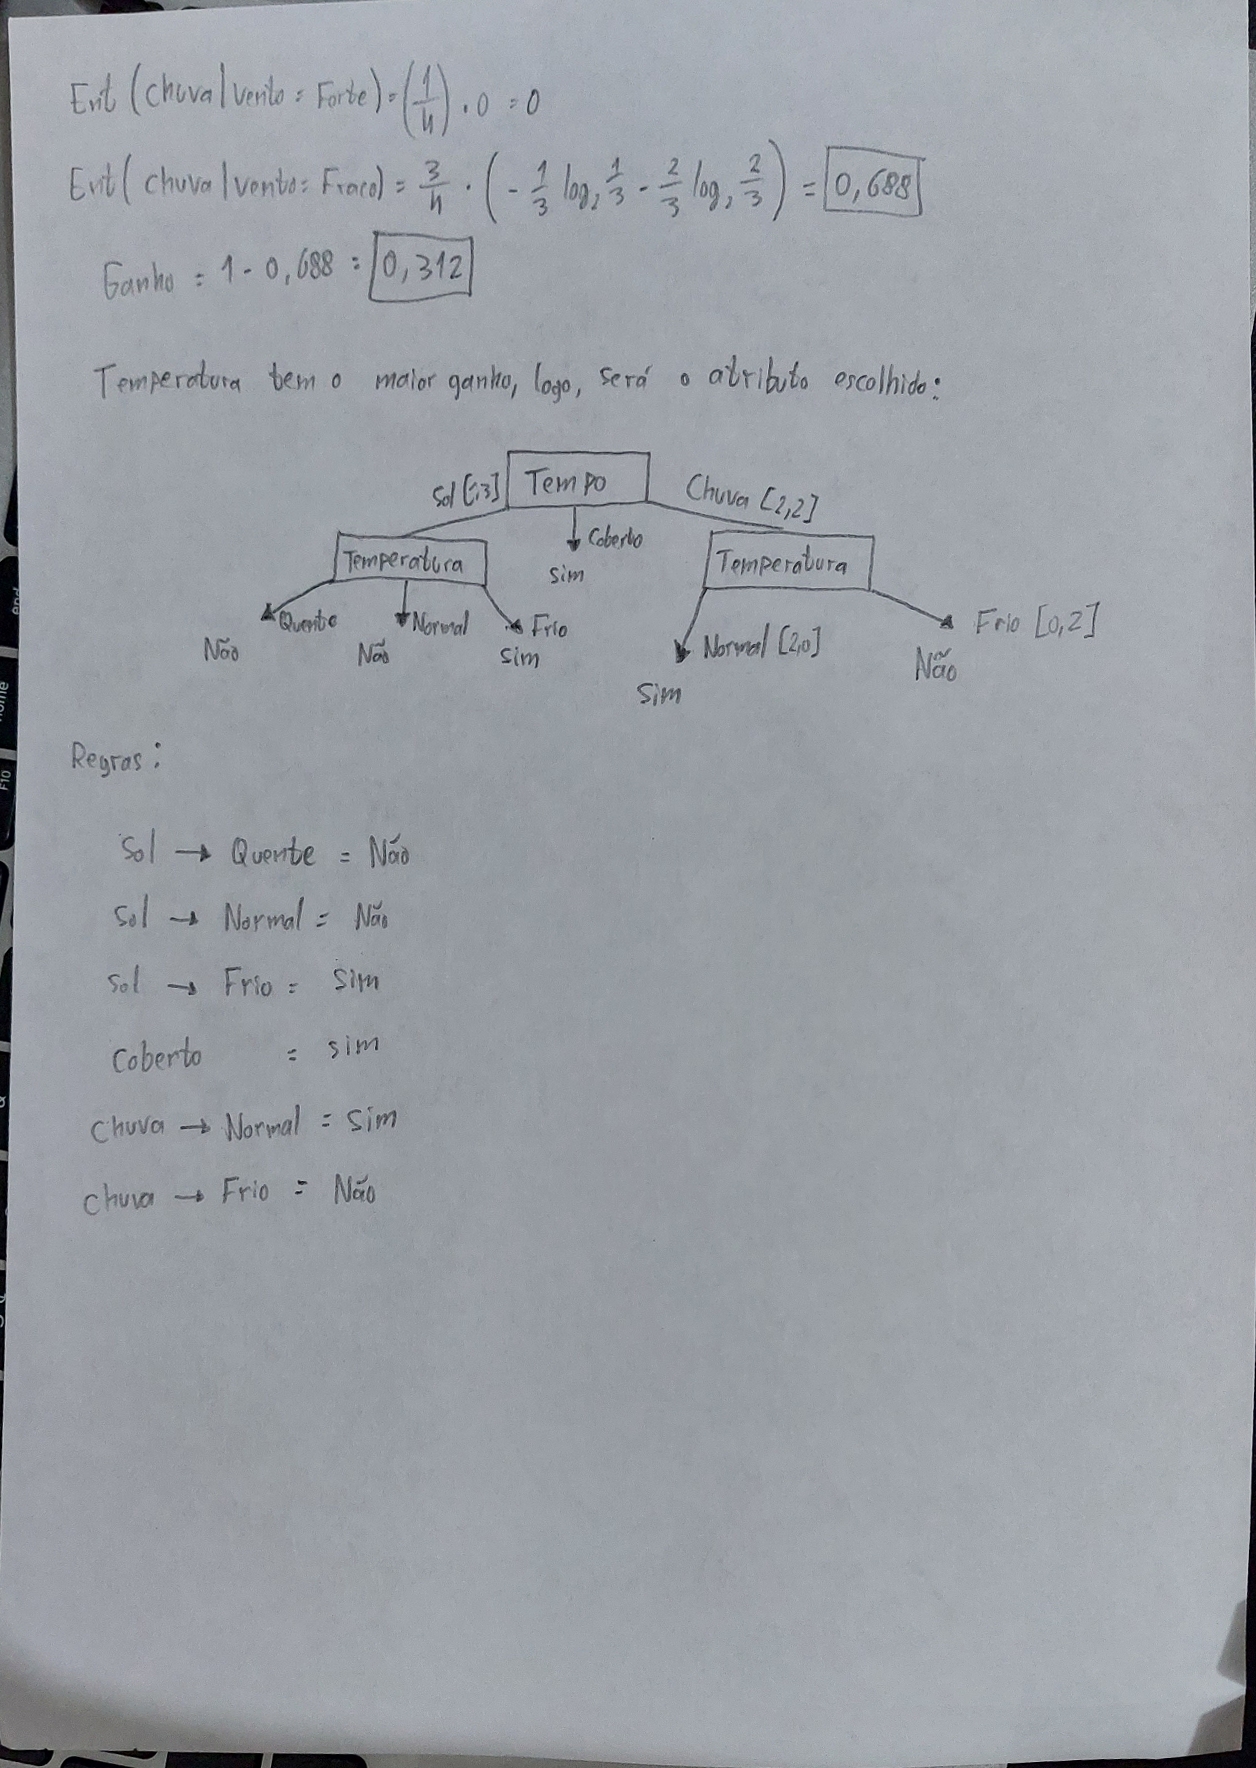 Ent (Chuva | vento = Forte) = (1/4) . 0 = 0
Ent (Chuva | vento = Fraco) = 3/4 . (- 1/3 log₂ 1/3 - 2/3 log₂ 2/3) = 0,688
Ganho = 1 - 0,688 = 0,312
Temperatura tem o maior ganho, logo, será o atributo escolhido:
Tempo
Sol Chuva [2,2]
Coberto
Sim
Temperatura Temperatura
Quente Normal Frio
Não Não Sim
Normal [2,0] Frio [0,2]
Sim Não
Regras:
Sol → Quente = Não
Sol → Normal = Não
Sol → Frio = Sim
Coberto = Sim
Chuva → Normal = Sim
Chuva → Frio = Não